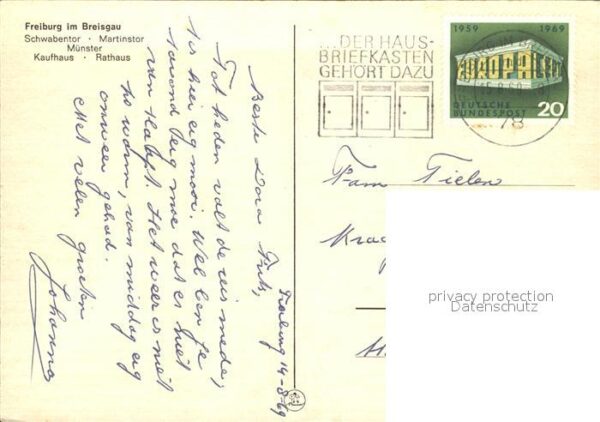 Freiburg im Breisgau
Schwabentor · Martinstor
Münster
Kaufhaus · Rathaus
...DER HAUS-
BRIEFKASTEN
GEHÖRT DAZU
1959 1969
EUROPA CEPT
DEUTSCHE
BUNDESPOST 20
78
Freiburg 14-8-69
Beste Dora Frits,
Tot heden valt de reis mede,
is hier erg mooi. Wel ben je
's avonds erg moe dat is niet
van
Het weer is niet
zo warm, van middag erg
onweer gehad.
Met velen groeten
Johanna
Fam Tielen
privacy protection
Datenschutz